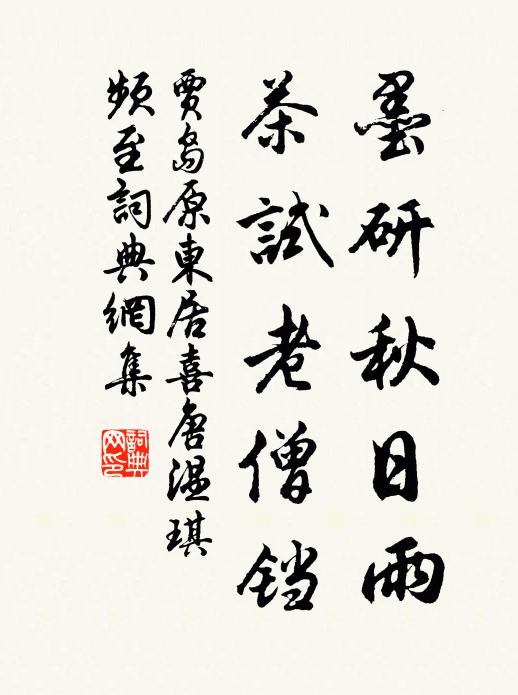 墨研秋日雨
茶試老僧鐺
賈島原東居喜唐溫琪
頻至詞典網集
詞典
网印